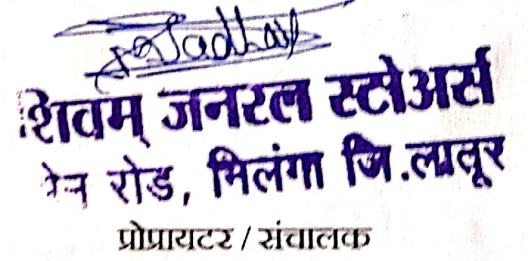 शिवम् जनरल स्टोअर्स
मेन रोड, निलंगा जि.लातूर
प्रोप्रायटर / संचालक